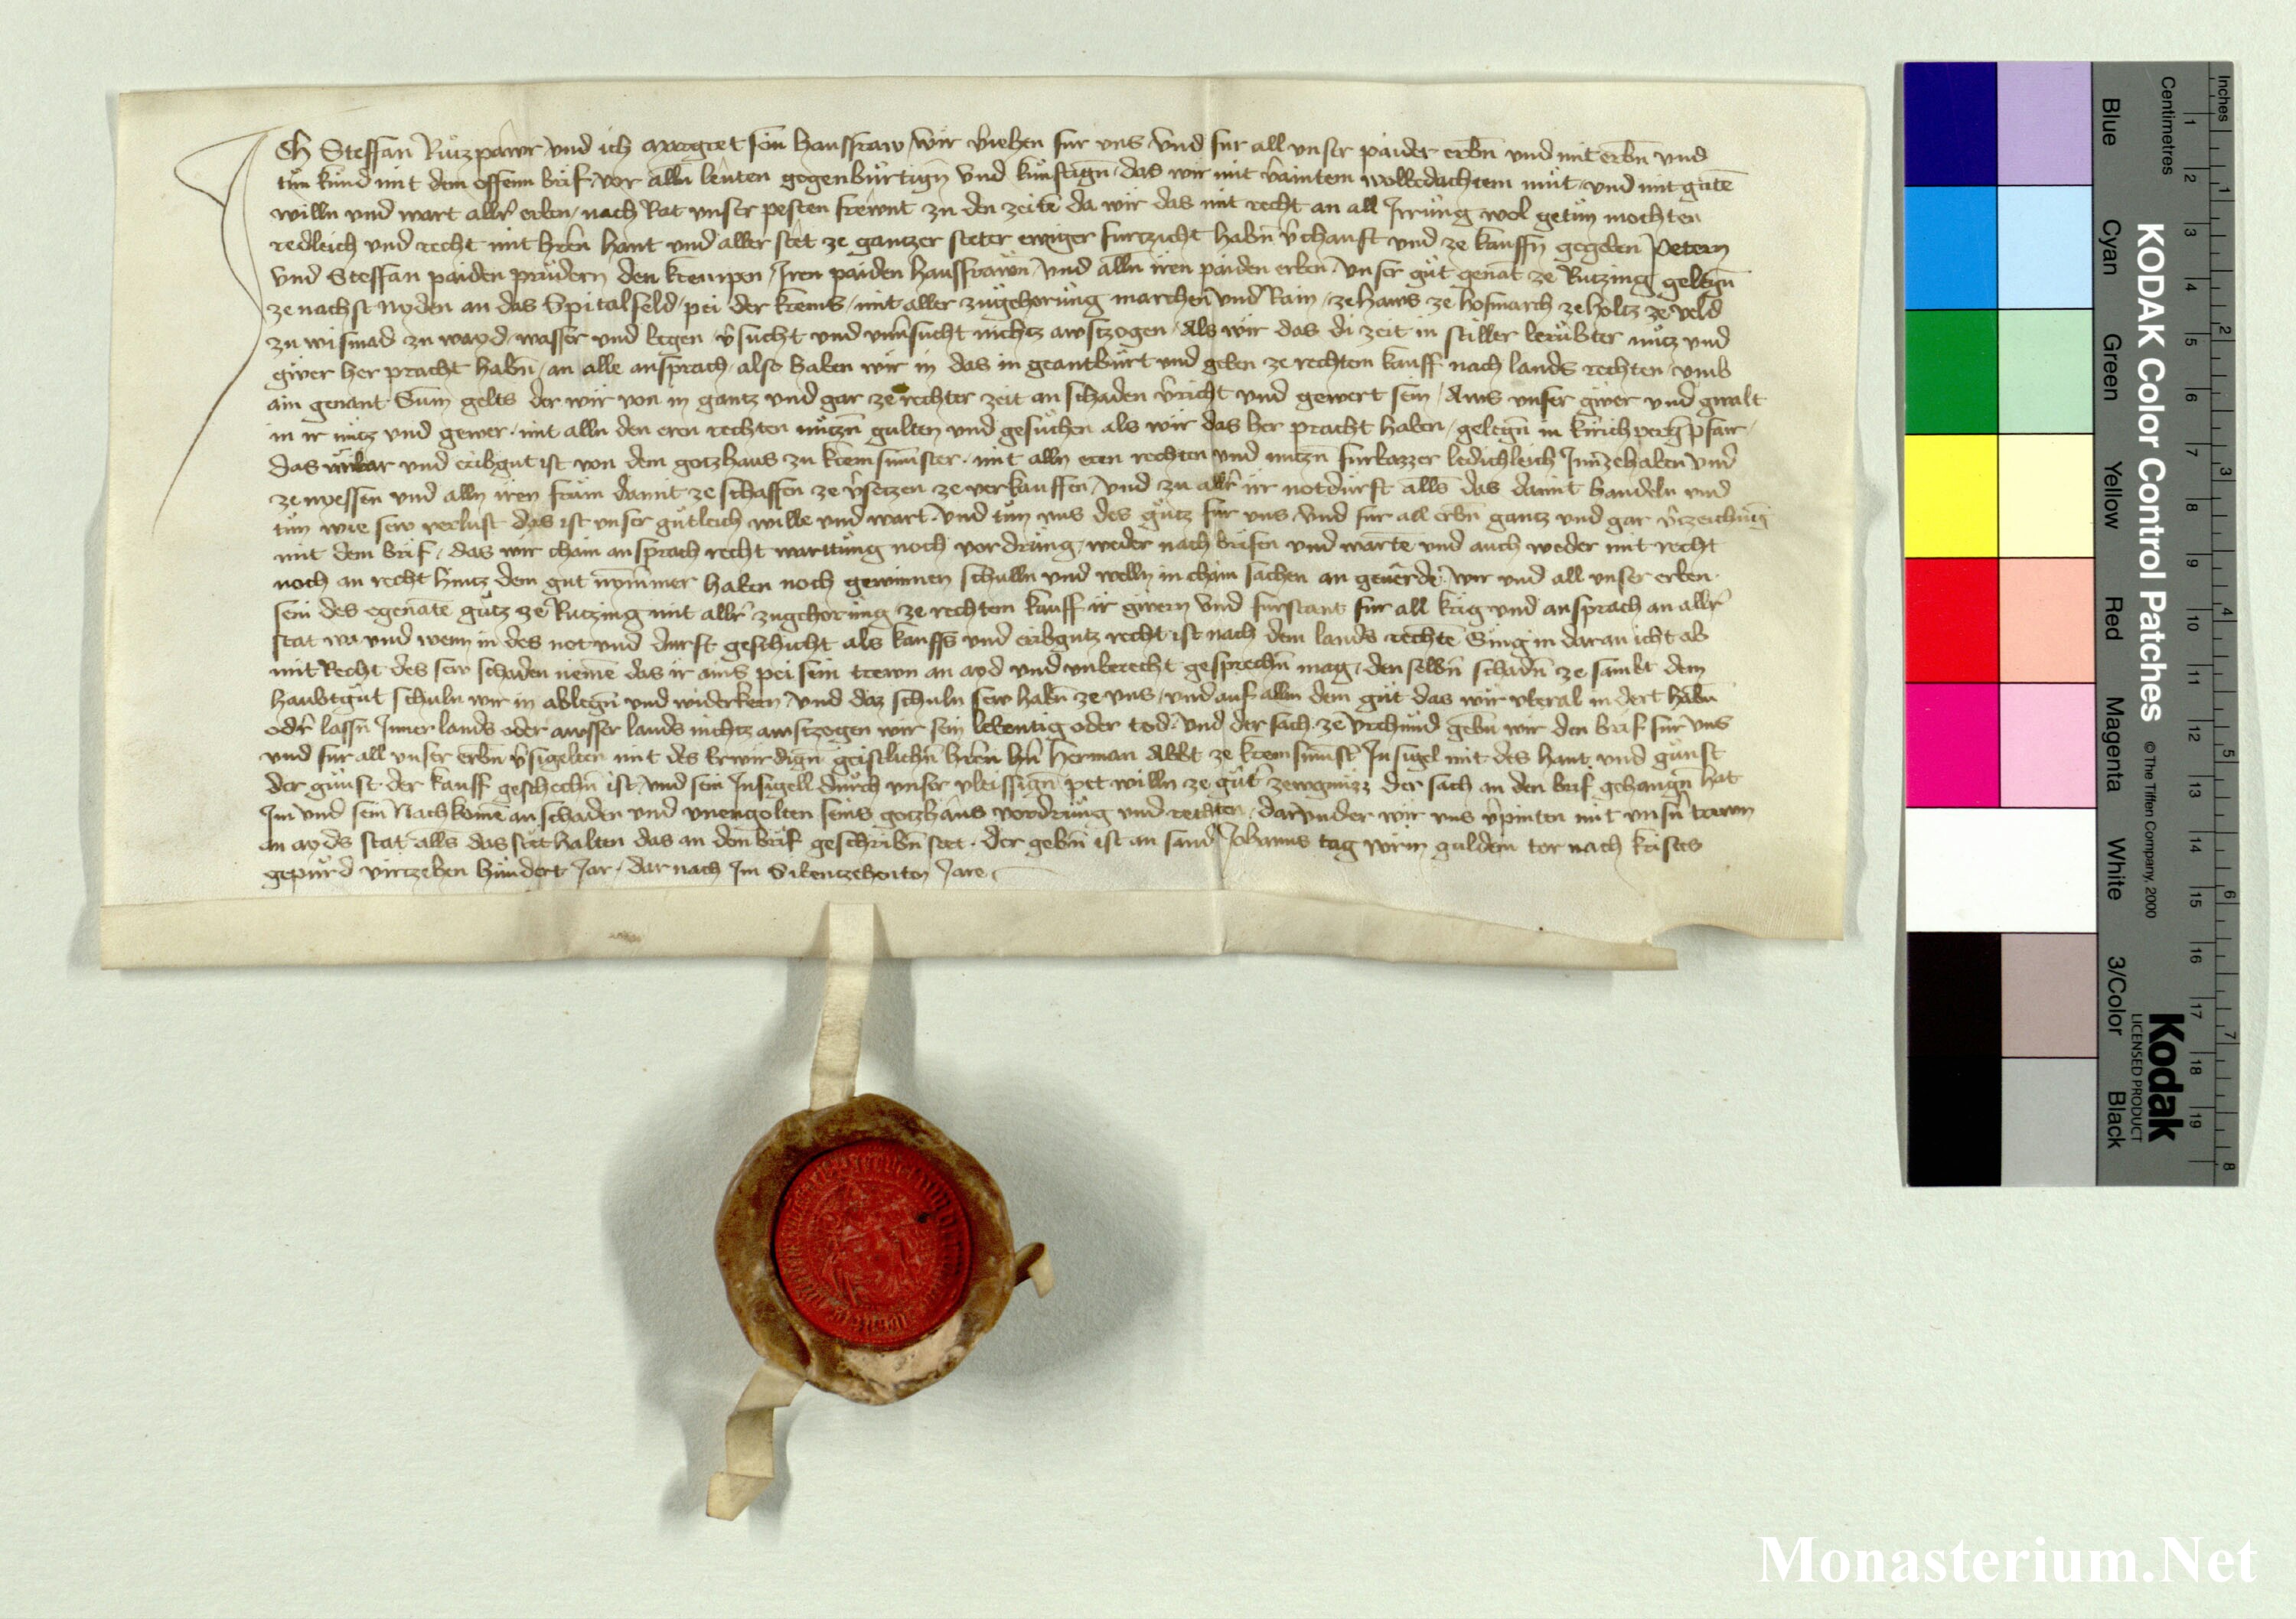 Ich Steffan Ruczpawr und ich Margret sein hausfraw wir v̂iehen fur uns und fur all unser paider erbn̄ und mit erbn̄ und
tůn kund mit dem offenn brif vor alln lewten gegenbůrtign̄ und kunftign̄ das wir mit v̂aintem wolbedachtem můt und mit gutē
willn und wart allr̂ erben nach Rat unser pesten frewnt zu den zeitē da wir das mit recht an all Irrung wol getůn mochten
redleich und recht mit hrēn hant und aller stet ze gantzer steter ewiger furtzicht habn̄ v̂chauft und ze kauffn̄ gegeben Petern
und Steffan paiden prudern den krempen Iren paiden hausfrawn und alln iren paiden erben unser gůt genāt ze Rutzing gelegn̄
ze nachst Noden an das Spitalfeld pei der krems mit aller zugehorung marchen und Rain ze haws ze hofmarch ze holtz ze veld
zu wismad zu wayd wasser und wegen v̂sucht und unv̂sucht nichtz awstzogen Als wir das di zeit in stiller beruebter nutz und
giver her pracht habn̄ an alle ansprach also haben wir in das in geantburt und geben ze rechtem kauff nach lands rechten umb
ain genant Sum gelts der wir von in gantz und gar ze rechter zeit an schaden v̂richt und gewert sein Aws unser giver und gwalt
in ir nutz und gewer mit alln den eren rechten nutzn̄ gulten und gesuchen als wir das her pracht haben gelegn̄ in kirichperg pfarr
das urbar und eribgut ist von dem gotzhaus zu kremsmunster mit alln eren rechten und nutzn̄ furbazzer ledichleich Inn ze haben und
ze niessen und alln iren frum damit ze schaffen ze v̂setzen ze verkauffen und zu allr̂ ir notdurft alls das damit handeln und
tůn wie sew verlust das ist unser gutleich wille und wart und tun uns des gutz fur uns und fur all erbn̄ gantz und gar v̂tzeichung
mit dem brif das wir chain ansprach recht warttung noch vordrung weder nach brifen und wartē und auch weder mit recht
noch an recht hintz dem gut nymmer haben noch gewinnen schulln und welln in chain sachen an gevērde wir und all unser erben
sein des egenātē gutz ze Rutzing mit allr̂ zugehorung ze rechtem kauff ir givern und furstant fur all krig und ansprach an allr̂
stat wa und wenn in des not und durft geschicht als kauffs und eribgutz recht ist nach dem lands rechtē Ging in daran icht ab
mit Recht des sew schaden nemē das ir ains pei sein trewn an ayd und unberecht gesprechn̄ mag den selbn̄ schadn̄ ze sambt dem
haubtgut schuln wir in ablegn̄ und widerkern und daz schuln sew habn̄ ze uns und auf allm dem gut das wir uberal in dert habn̄
odr̂ lassn̄ Inner lands oder awsser lands nichtz awstzogen wir sein lebentig oder tod und der sach ze urchund gebn̄ wir den brif fur uns
und fur all unser erbn̄ v̂sigelten mit des Erwirdign̄ geistlichn̄ hrēn hn̄ Herman Abbt ze kremsmunstr̂ Insigel mit des hant und gunst
der gunst der kauff geschechn̄ ist und sein Insigell durch unser vleissign̄ pet willn ze gutr̂ zewgnüzz der sach an den brif gehangn̄ hat
Im und sein Nachkomē an schaden und unengolten seins gotzhaus vordrung und rechten darunder wir uns v̂pinten mit unsn̄ trewn
an ayds stat alls das stet halten das an dem brif geschribn̄ stet der gebn̄ ist an sand Johanns tag wr̂in guldein tor nach kristes
gepurd virtzehen hundert Jar dar nach Im Sibentzehenten Jare
KODAK Color Control Patches
© The Tiffen Company, 2000
Kodak
LICENSED PRODUCT
Inches
Centimetres
1 2 3 4 5 6 7 8
1 2 3 4 5 6 7 8 9 10 11 12 13 14 15 16 17 18 19
Blue
Cyan
Green
Yellow
Red
Magenta
White
3/Color
Black
Monasterium.Net